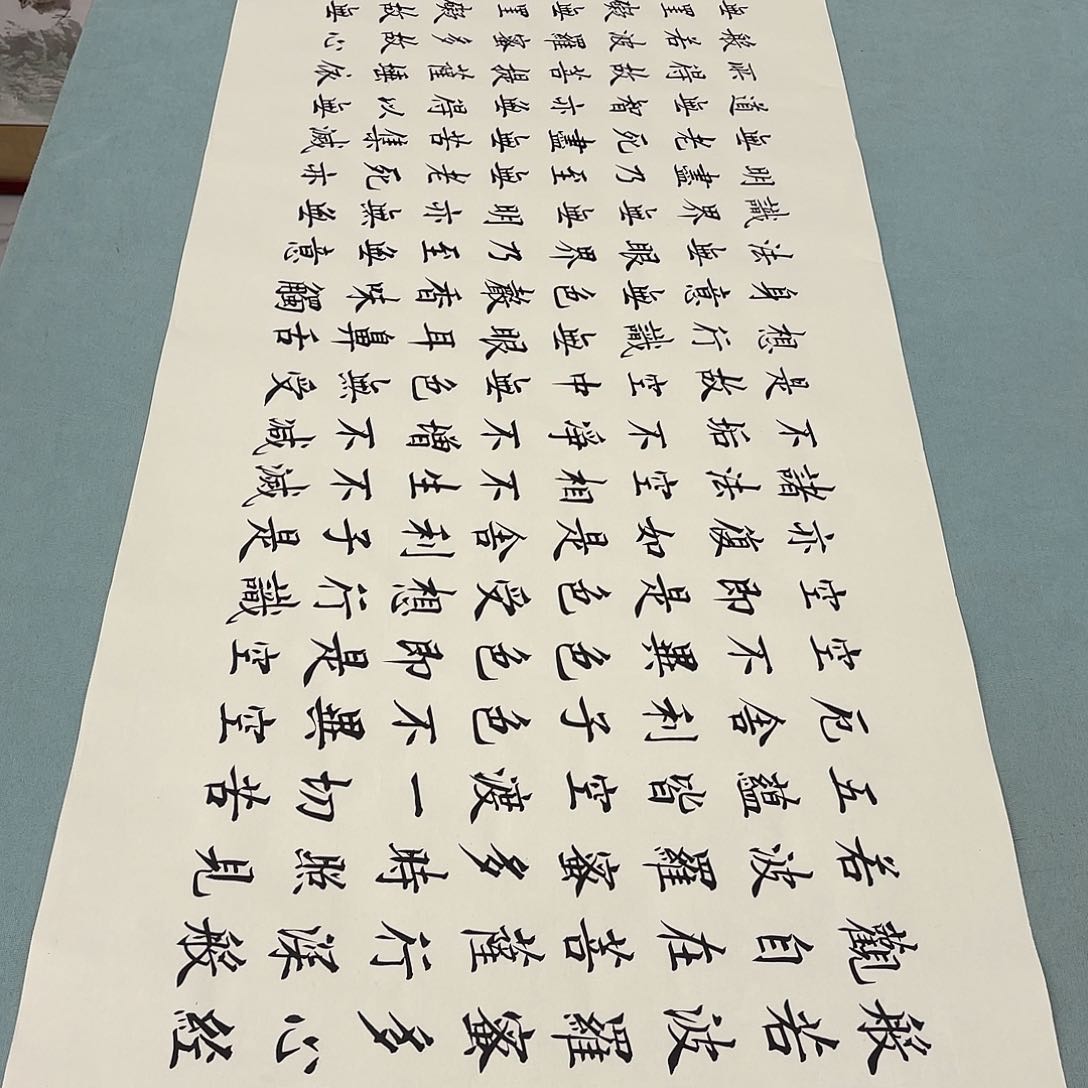 般若波羅蜜多心經
觀自在菩薩行深般
若波羅蜜多時照見
五蘊皆空渡一切苦
厄舍利子色不異空
空不異色色即是空
空即是色受想行識
亦復如是舍利子是
諸法空相不生不滅
不垢不淨不增不減
是故空中無色無受
想行識無眼耳鼻舌
身意無色聲香味觸
法無眼界乃至無意
識界無無明亦無無
明盡乃至無老死亦
無老死盡無苦集滅
道無智亦無得以無
所得故菩提薩埵依
般若波羅蜜多故心
無罣礙無罣礙故無